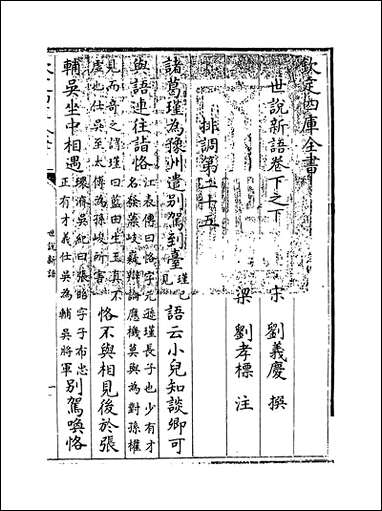 欽定四庫全書
世說新語卷下之下
宋 劉義慶 撰
梁 劉孝標 注
排調第二十五
諸葛瑾為豫州遣別駕到臺 瑾已見 語云小兒知談卿可
與語連往詣恪 江表傳曰恪字元遜瑾長子也少有才
名發藻岐嶷辯論應機莫與為對孫權
見而奇之謂瑾曰藍田生玉真不
虛也仕吳至太傅為孫峻所害 恪不與相見後於張
輔吳坐中相遇 環濟吳紀曰張昭字子布忠
正有才義仕吳為輔吳將軍 別駕喚恪
世說新語
一